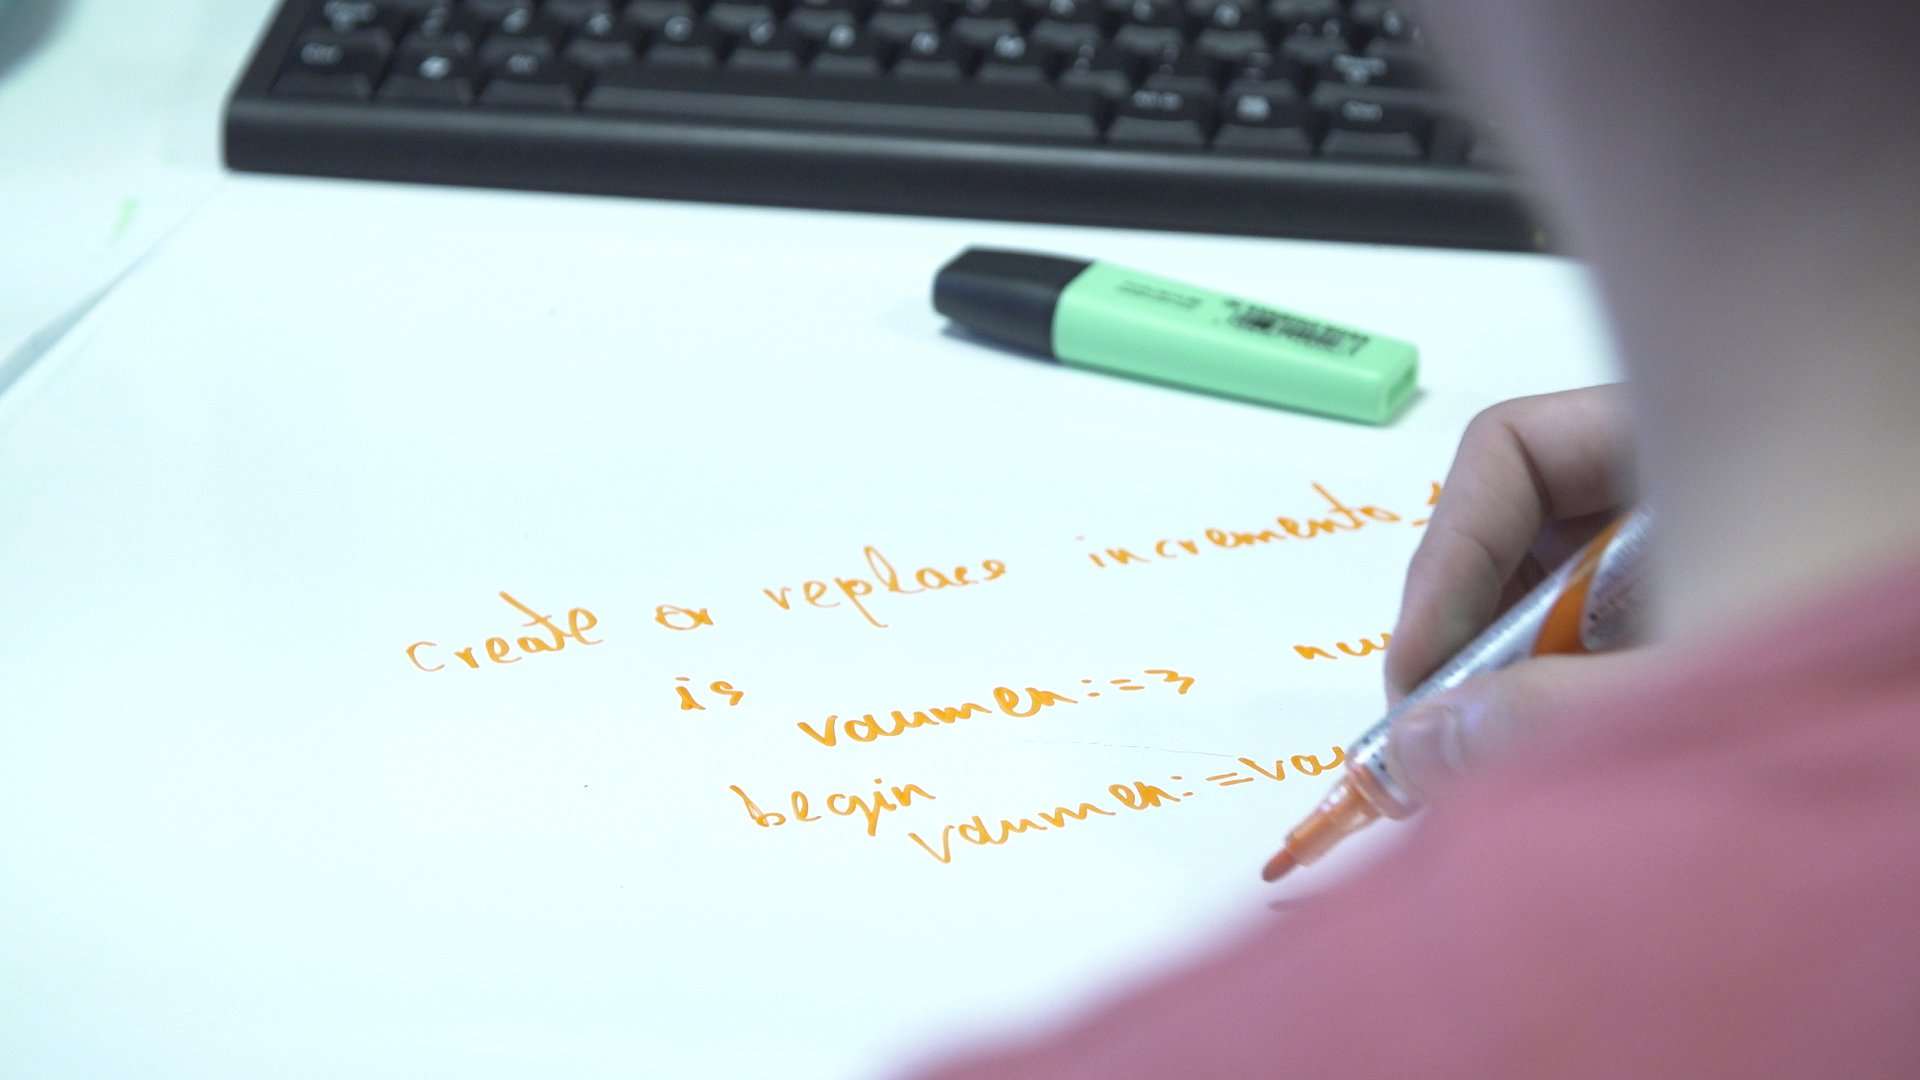 create or replace incremento_
is
vaumen:=3 nu
begin
vaumen:=va